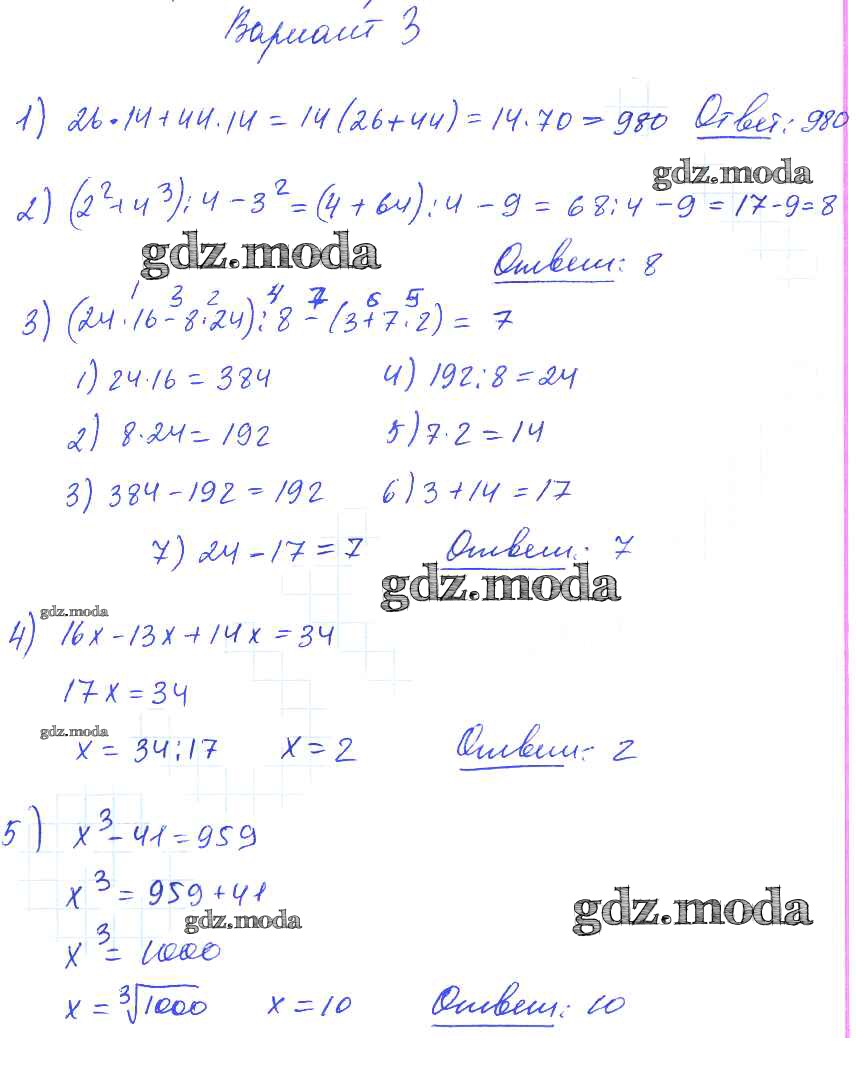 Вариант 3
1) 26·14+44·14 = 14(26+44) = 14·70 = 980 Ответ: 980
gdz.moda
2) (2²+4³):4-3² = (4+64):4-9 = 68:4-9 = 17-9=8
gdz.moda
Ответ: 8
1 3 2 4 7 6 5
3) (24·16-8·24):8-(3+7·2) = 7
1) 24·16 = 384 4) 192:8 = 24
2) 8·24 = 192 5) 7·2 = 14
3) 384-192 = 192 6) 3+14 = 17
7) 24-17 = 7 Ответ: 7
gdz.moda
gdz.moda
4) 16x-13x+14x = 34
17x = 34
gdz.moda
x = 34:17 x = 2 Ответ: 2
5) x³-41 = 959
x³ = 959+41
gdz.moda
gdz.moda
x³ = 1000
x = ³√1000 x = 10 Ответ: 10